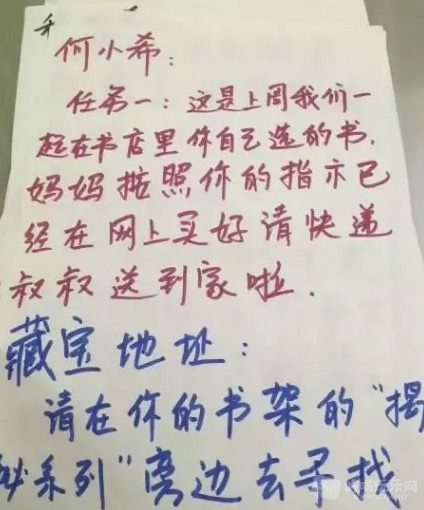 何小希：
任务一：这是上周我们一
起在书店里你自己选的书，
妈妈按照你的指示已
经在网上买好请快递
叔叔送到家啦．
藏宝地址：
请在你的书架的“揭
秘系列”旁边去寻找